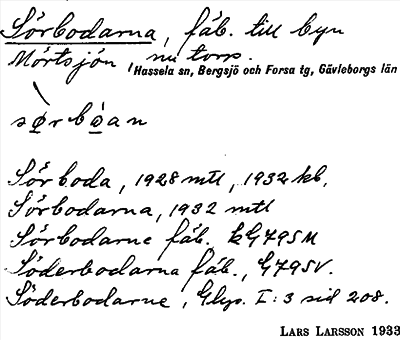 Sörbodarna, fäb. till byn
Mörtsjön, nu torp.
Hassela sn, Bergsjö och Forsa tg, Gävleborgs län
sørbòan
Sörboda, 1928 mtl, 1932 kb.
Sörbodarna, 1932 mtl
Sörbodarne fäb. kG79SM
Söderbodarna fäb., G79SV.
Söderbodarne, Glysp. I:3 sid 208.
LARS LARSSON 1933